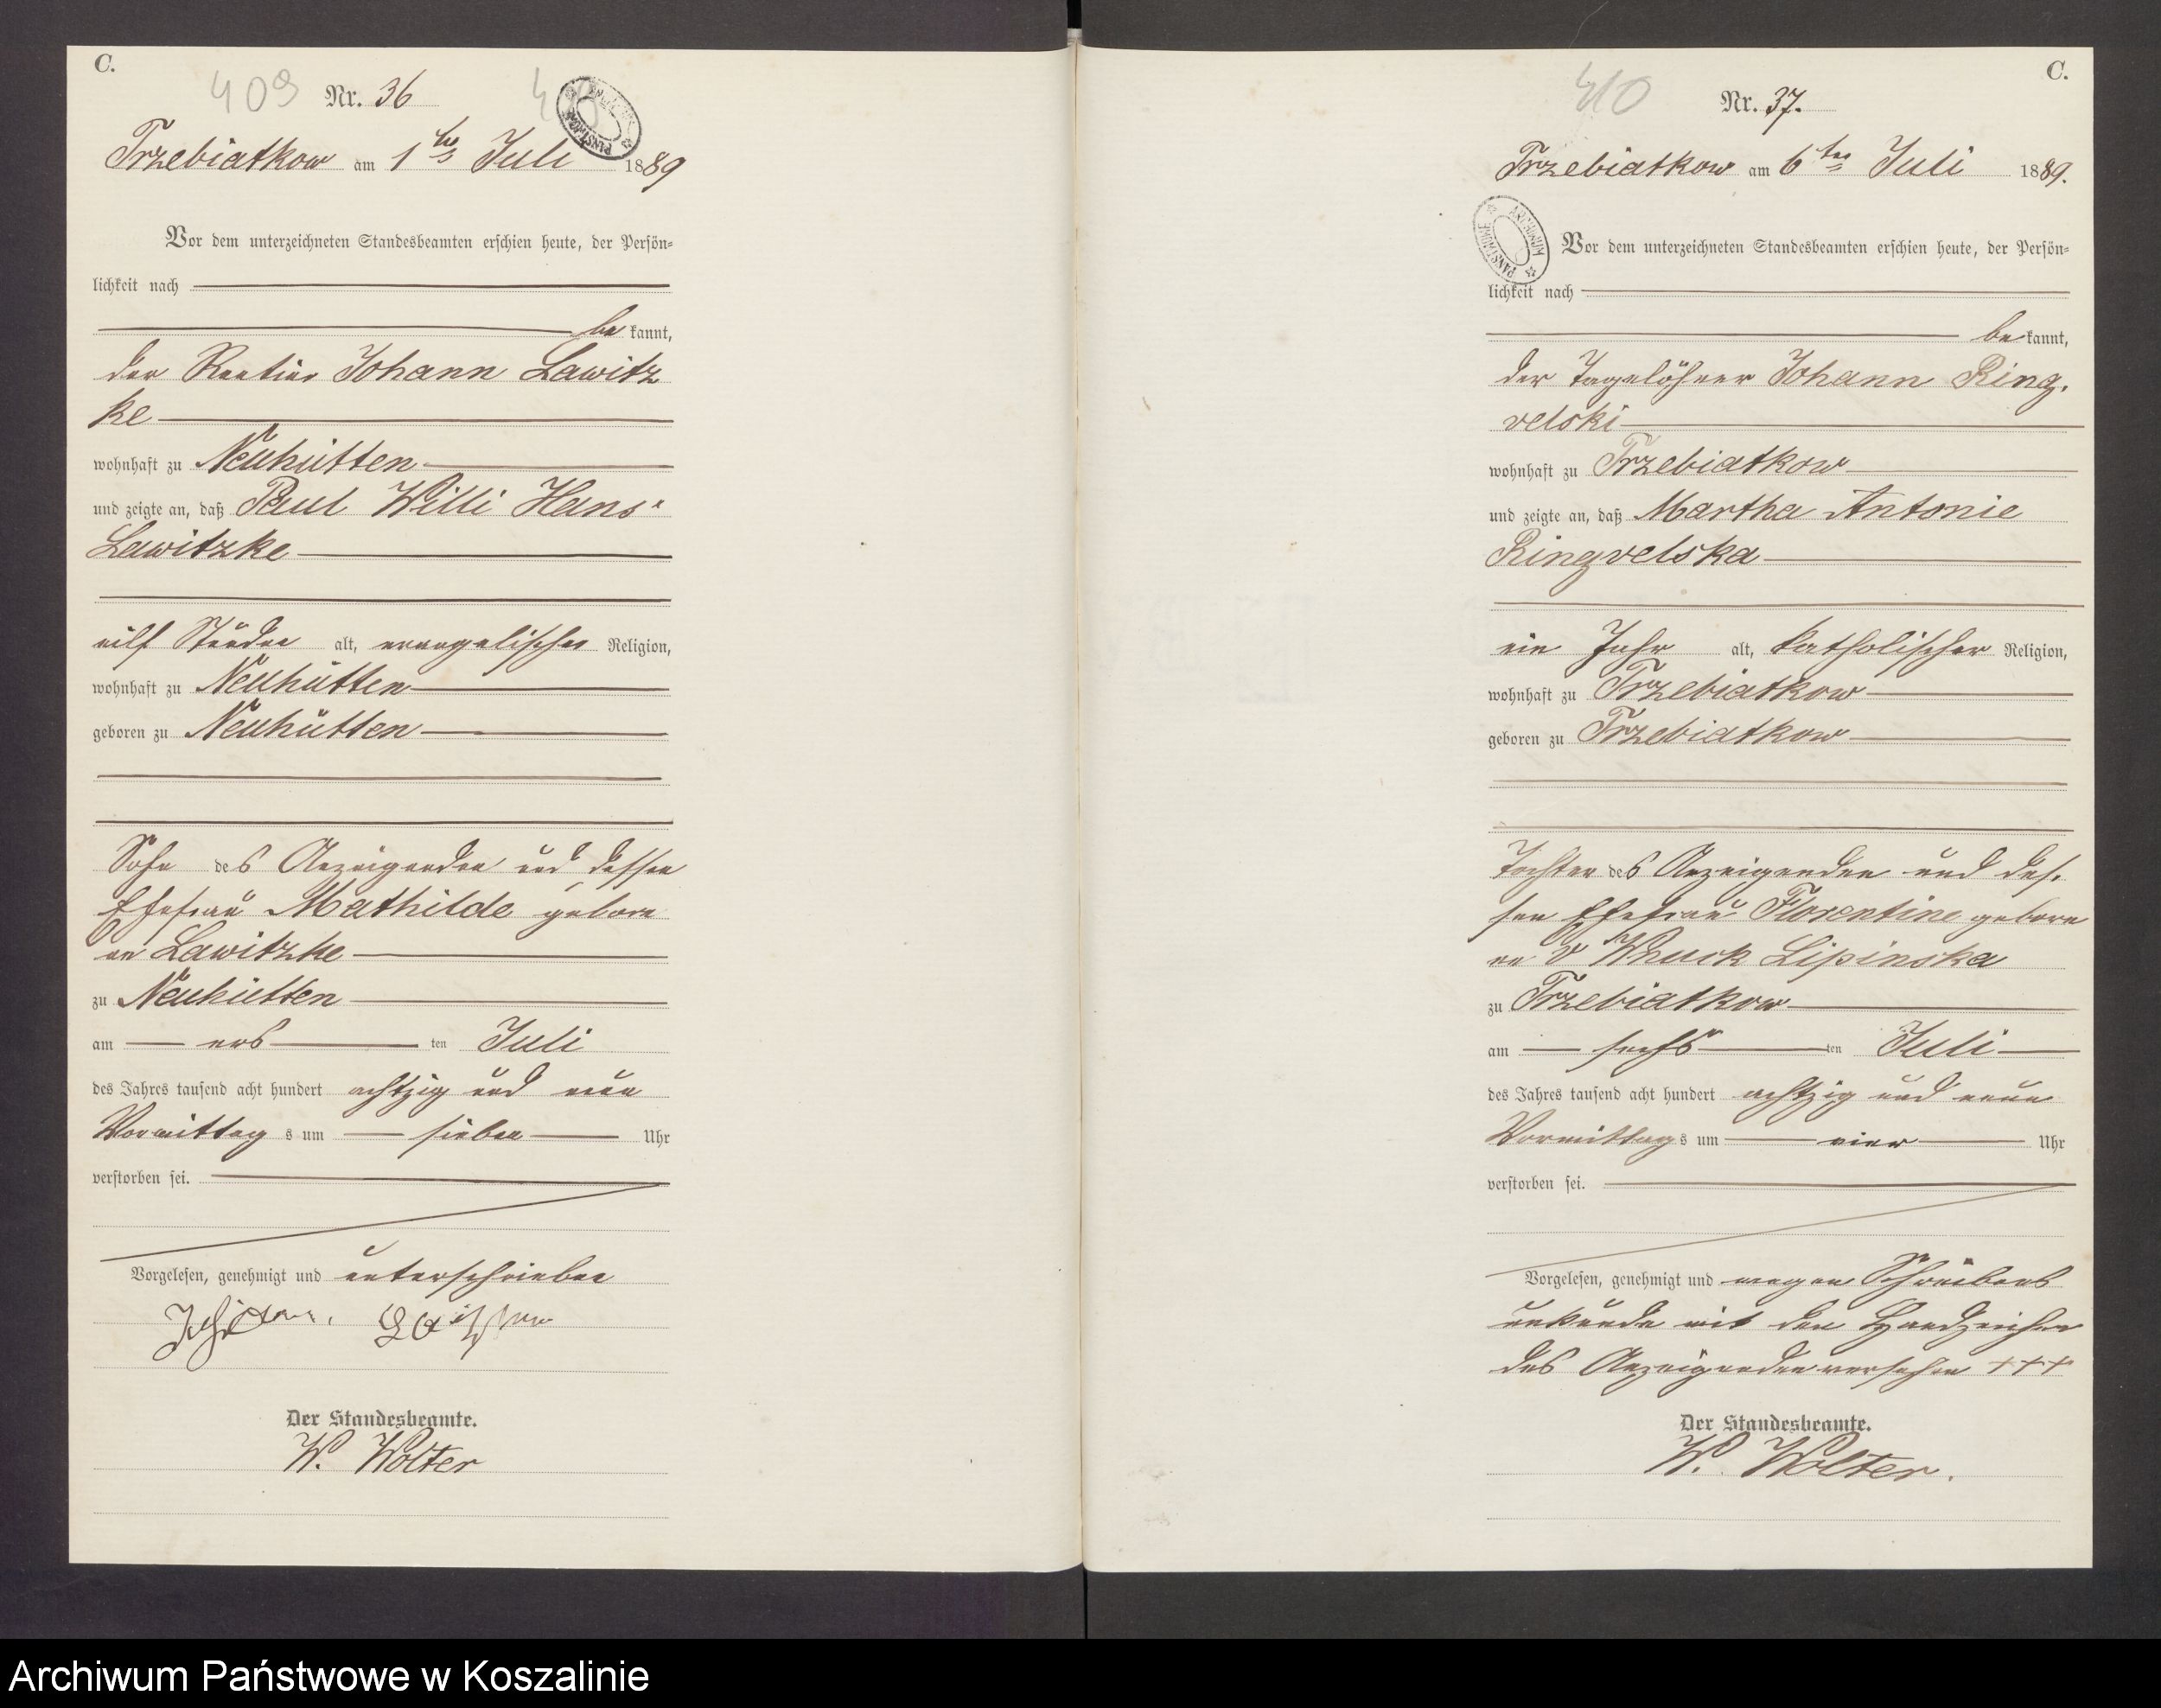 C.
409 Nr. 36
Trzebiatkow am 1ten Juli 1889
Vor dem unterzeichneten Standesbeamten erschien heute, der Persön-
lichkeit nach
be kannt,
der Rentier Johann Lawitz
ke
wohnhaft zu Neuhütten
und zeigte an, daß Paul Willi Hans
Lawitzke
eilf Stunden alt, evangelischer Religion,
wohnhaft zu Neuhütten
geboren zu Neuhütten
Sohn des Anzeigenden und dessen
Ehefrau Mathilde gebore
ne Lawitzke
zu Neuhütten
am ers ten Juli
des Jahres tausend acht hundert achtzig und neun
Vormittag s um sieben Uhr
verstorben sei.
Vorgelesen, genehmigt und unterschrieben
Der Standesbeamte.
W. Wolter
C.
410 Nr. 37.
Trzebiatkow am 6ten Juli 1889.
Vor dem unterzeichneten Standesbeamten erschien heute, der Persön-
lichkeit nach
be kannt,
der Tagelöhner Johann Ring.
velski
wohnhaft zu Trzebiatkow
und zeigte an, daß Martha Antonie
Ringvelska
ein Jahr alt, katholischer Religion,
wohnhaft zu Trzebiatkow
geboren zu Trzebiatkow
Tochter des Anzeigenden und des.
sen Ehefrau Florentine gebore
ne v Wnuck Lipinska
zu Trzebiatkow
am sechs ten Juli
des Jahres tausend acht hundert achtzig und neun
Vormittag s um vier Uhr
verstorben sei.
Vorgelesen, genehmigt und wegen Schreibens
unkunde mit den Handzeichen
des Anzeigenden versehen +++
Der Standesbeamte.
W. Wolter.
Archiwum Państwowe w Koszalinie